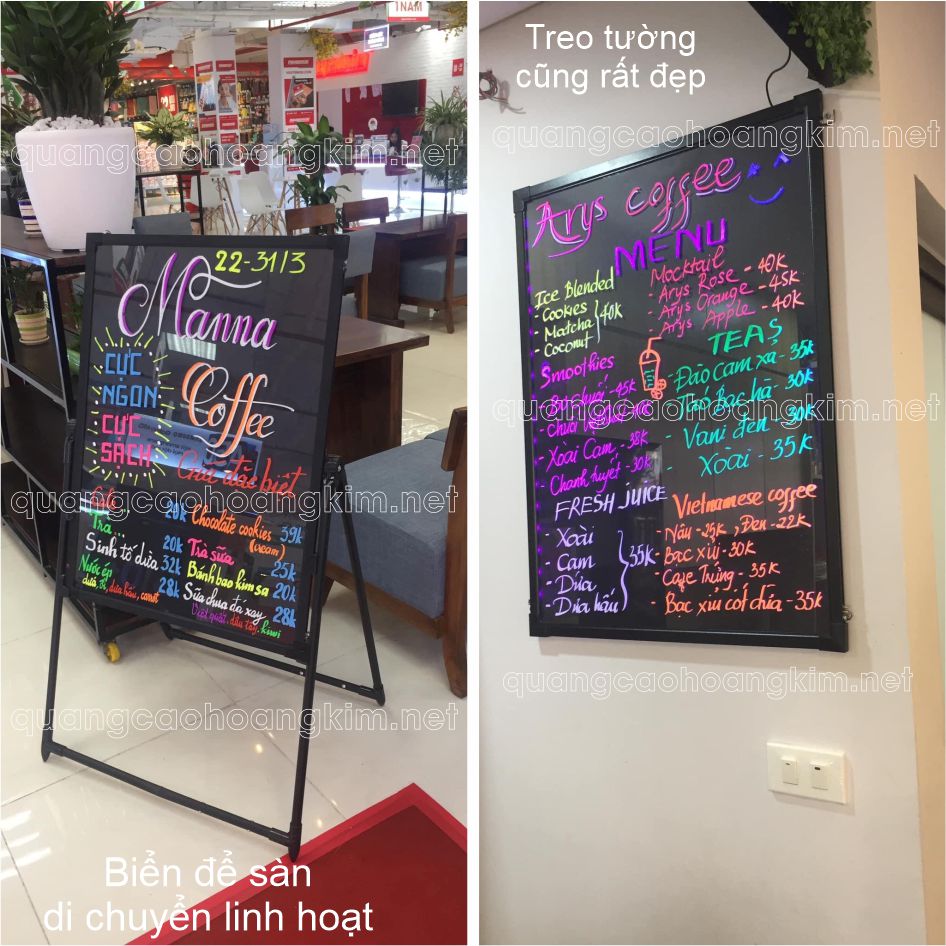 1 NĂM
quangcaohoangkim.net
22-31/3
Manna
Coffee
CỰC
NGON
CỰC
SẠCH
Giá đặc biệt
20k
Trà
20k
Sinh tố dừa 32k
Nước ép
dưa hấu, carrot 28k
Chocolate cookies 39k
(cream)
Trà sữa 25k
Bánh bao kim sa 20k
Sữa chua đá xay 28k
Việt quất, dâu tây, kiwi
quangcaohoangkim.net
quangcaohoangkim.net
Biển để sàn
di chuyển linh hoạt
Treo tường
cũng rất đẹp
quangcaohoangkim.net
Arys coffee
MENU
Ice Blended
- Cookies
- Matcha
- Coconut
40k
Mocktail
- Arys Rose - 40k
- Arys Orange - 45k
- Arys Apple - 40k
Smoothies
- Bơ chuối - 45k
- Xoài Cam - 38k
- Chanh tuyết - 30k
TEAS
- Đào cam xả - 35k
- Táo bạc hà - 30k
- Vani đen - 30k
- Xoài - 35k
quangcaohoangkim.net
FRESH JUICE
- Xoài
- Cam
- Dứa
- Dưa hấu
35k
Vietnamese coffee
- Nâu - 25k, Đen - 22k
- Bạc xỉu - 30k
- Cafe Trứng - 35k
- Bạc xỉu cốt dừa - 35k
quangcaohoangkim.net